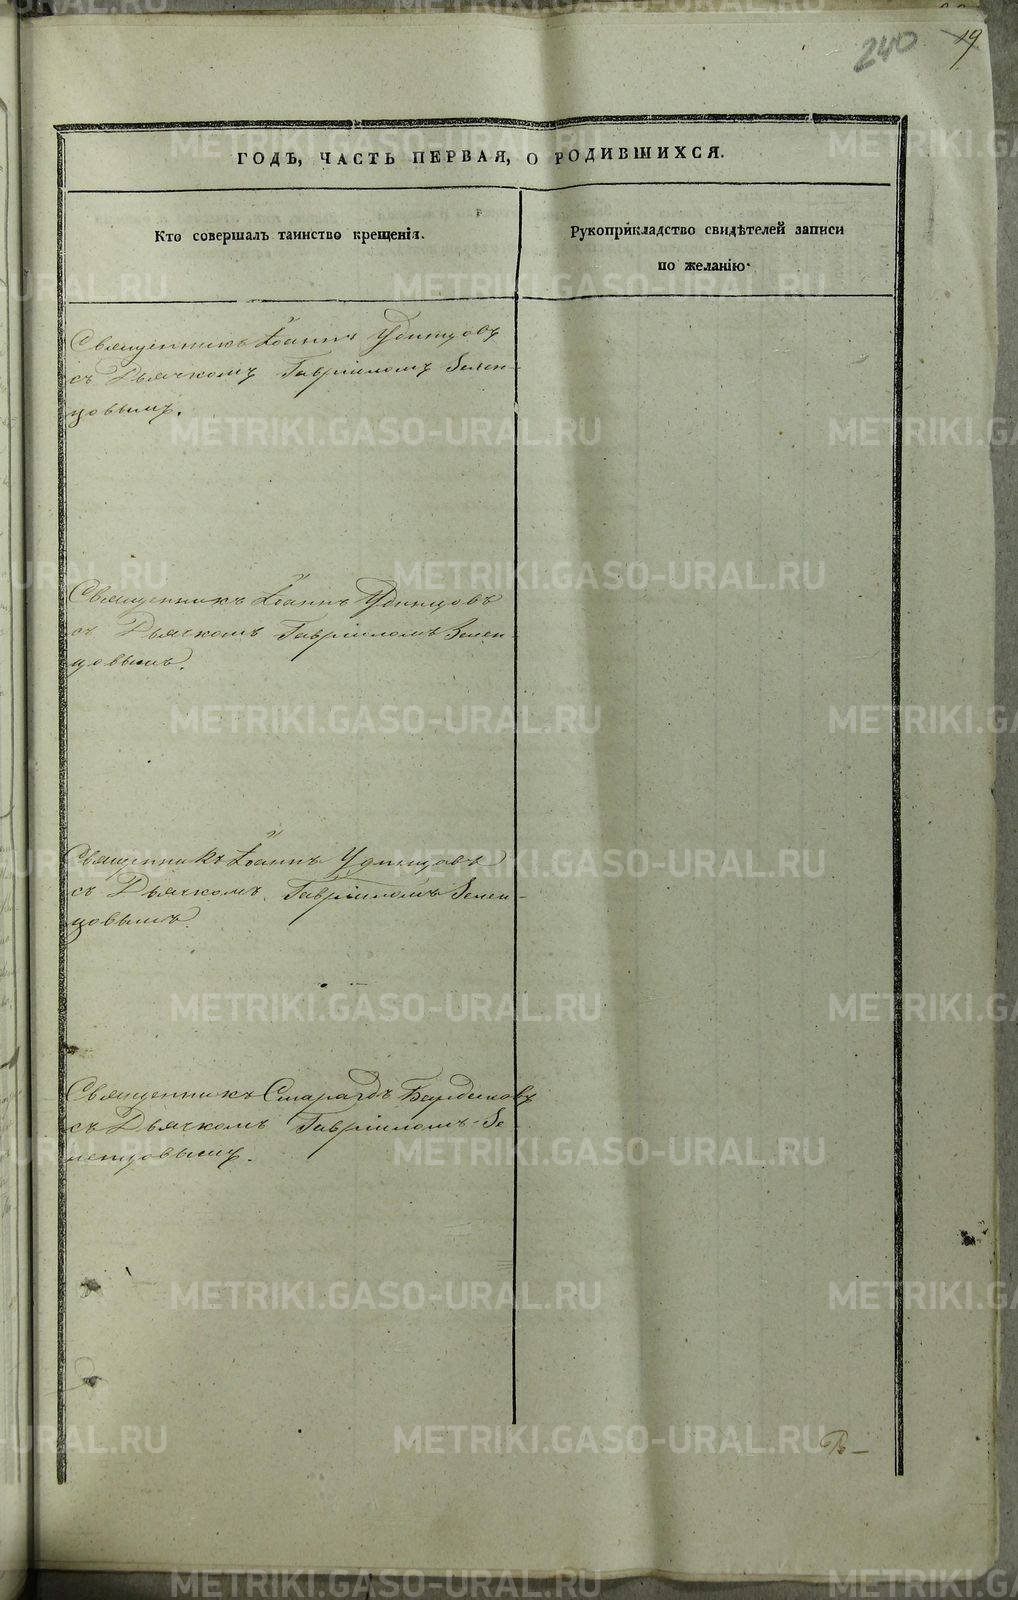 240
19
ГОДЪ, ЧАСТЬ ПЕРВАЯ, О РОДИВШИХСЯ.
Кто совершалъ таинство крещенія.
Рукоприкладство свидѣтелей записи
по желанію.
Священникъ Іоаннъ Удинцовъ
съ Дьячкомъ Гавріиломъ Зелен-
цовымъ.
Священникъ Іоаннъ Удинцовъ
съ Дьячкомъ Гавріиломъ Зелен-
цовымъ.
Священникъ Іоаннъ Удинцовъ
съ Дьячкомъ Гавріиломъ Зелен-
цовымъ.
Священникъ Смарагдъ
съ Дьячкомъ Гавріиломъ Зе-
ленцовымъ.
METRIKI.GASO-URAL.RU